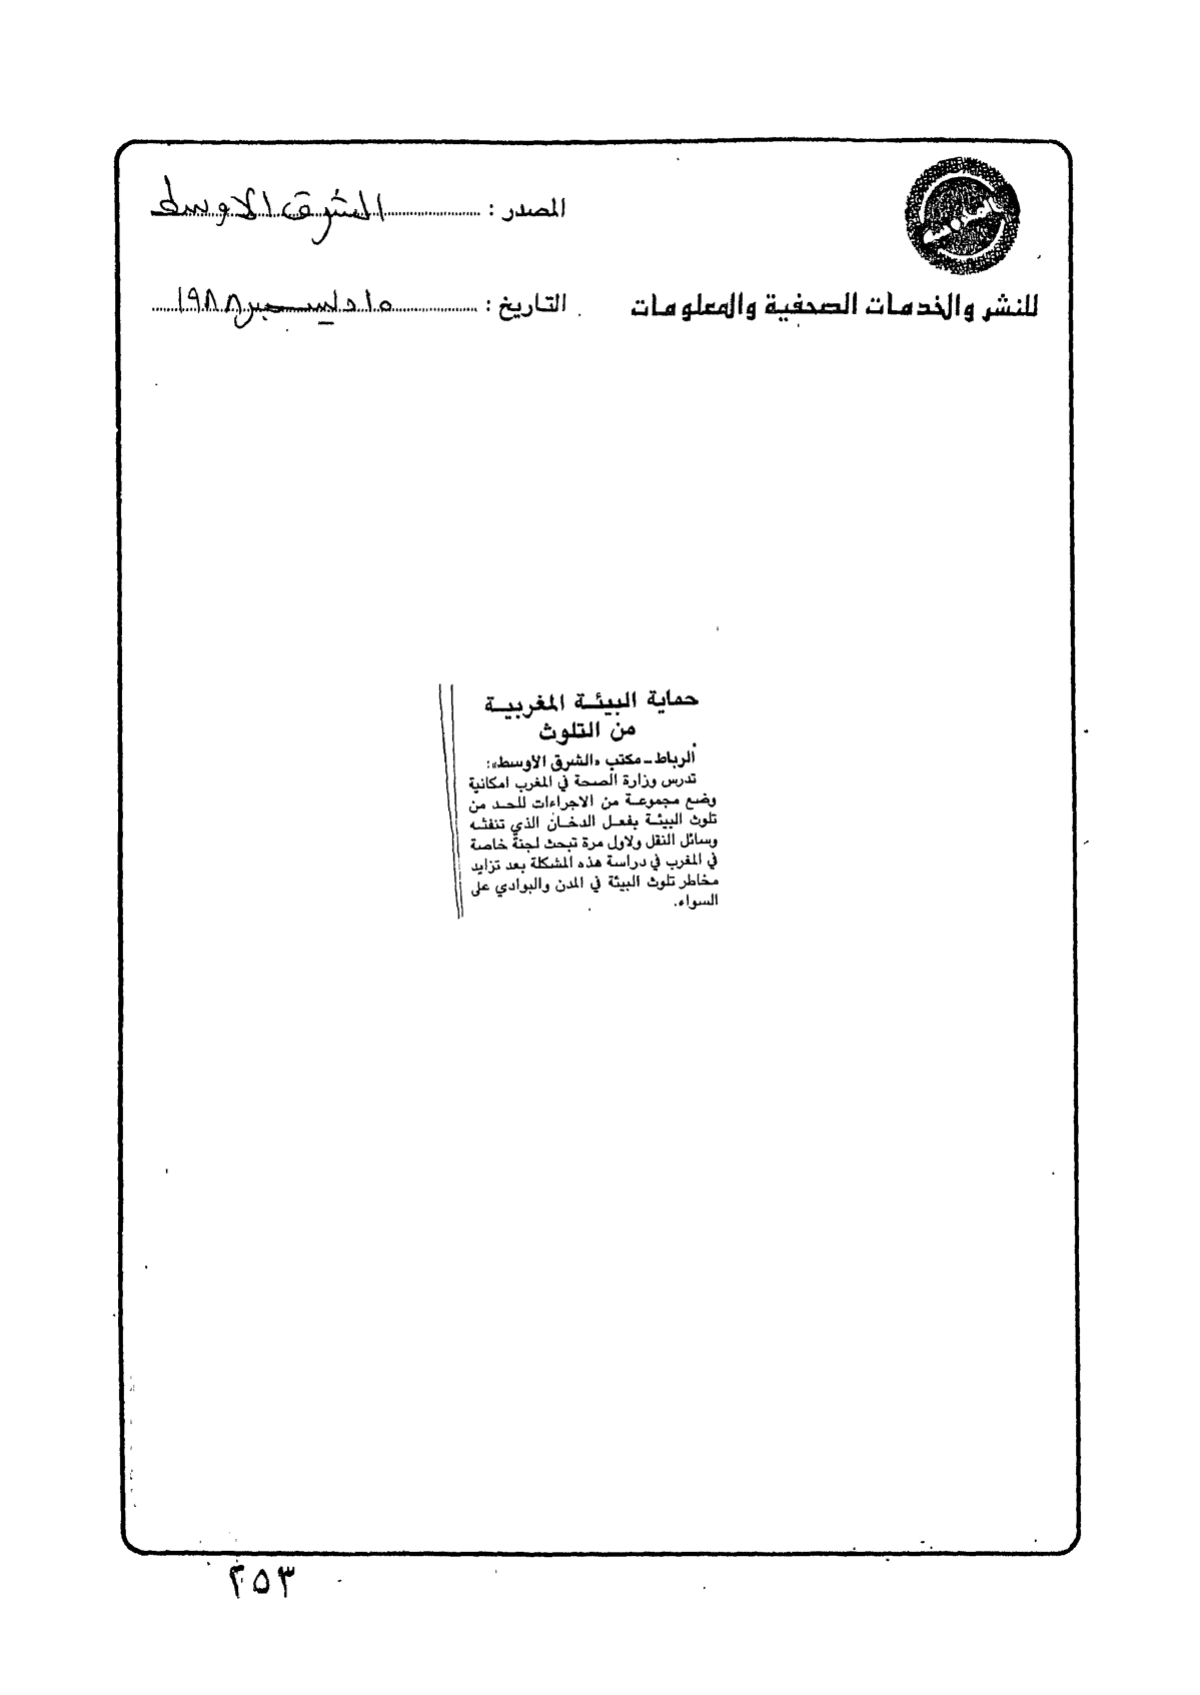 المصدر : الشرق الاوسط
للنشر والخدمات الصحفية والمعلومات
التاريخ : ١٥ ديسمبر ١٩٨٨
حماية البيئة المغربية
من التلوث
الرباط ـ مكتب «الشرق الأوسط»:
تدرس وزارة الصحة في المغرب امكانية
وضع مجموعة من الاجراءات للحد من
تلوث البيئة بفعل الدخان الذي تنفثه
وسائل النقل ولاول مرة تبحث لجنة خاصة
في المغرب في دراسة هذه المشكلة بعد تزايد
مخاطر تلوث البيئة في المدن والبوادي على
السواء.
٢٥٣